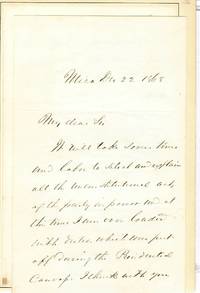 Utica Dec 22 1868
My dear Sir
It will take some time
and labor to select and explain
all the unconstitutional acts
of the party in power and at
the time I am over loaded
with duties which were put
off during the Presidential
Canvass. I think with you